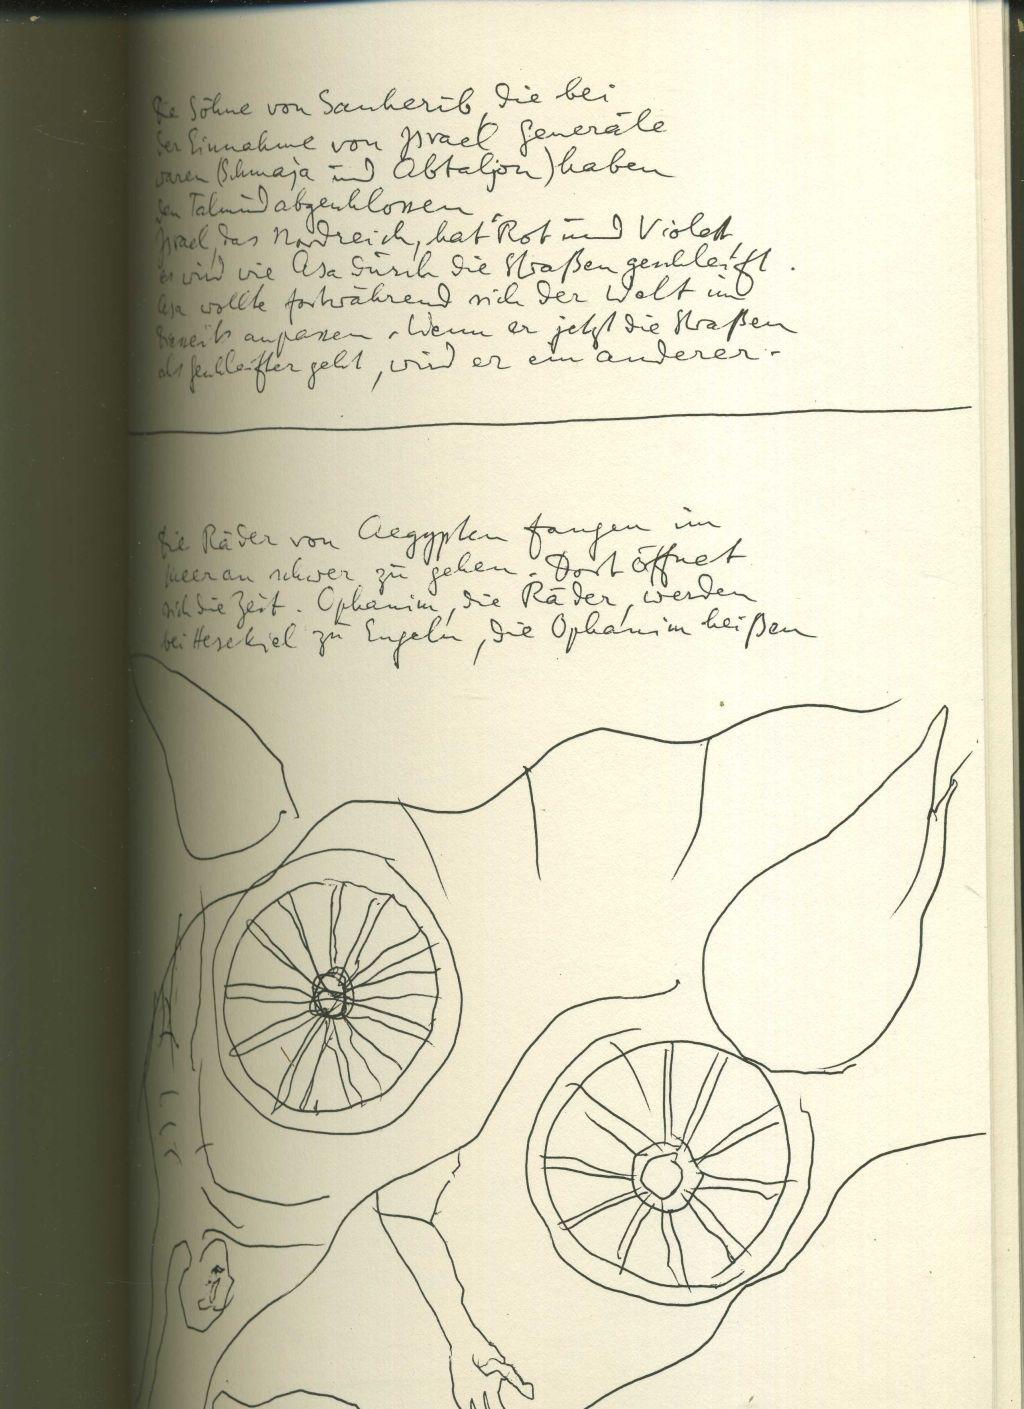 Die Söhne von Sanherib, die bei
der Einnahme von Israel Generäle
waren (Schmaja und Abtaljon) haben
den Talmud abgeschlossen.
Israel, das Nordreich, hat Rot und Violett
es wird wie Asa durch die Straßen geschleift.
Asa wollte fortwährend sich der Welt im
anpassen. Wenn er jetzt die Straßen
als Geschleifter geht, wird er ein anderer.
Die Räder von Aegypten fangen im
Meer an schwer zu gehen. Dort öffnet
sich die Zeit. Ophanim, die Räder, werden
bei Hesekiel zu Engeln, die Ophanim heißen